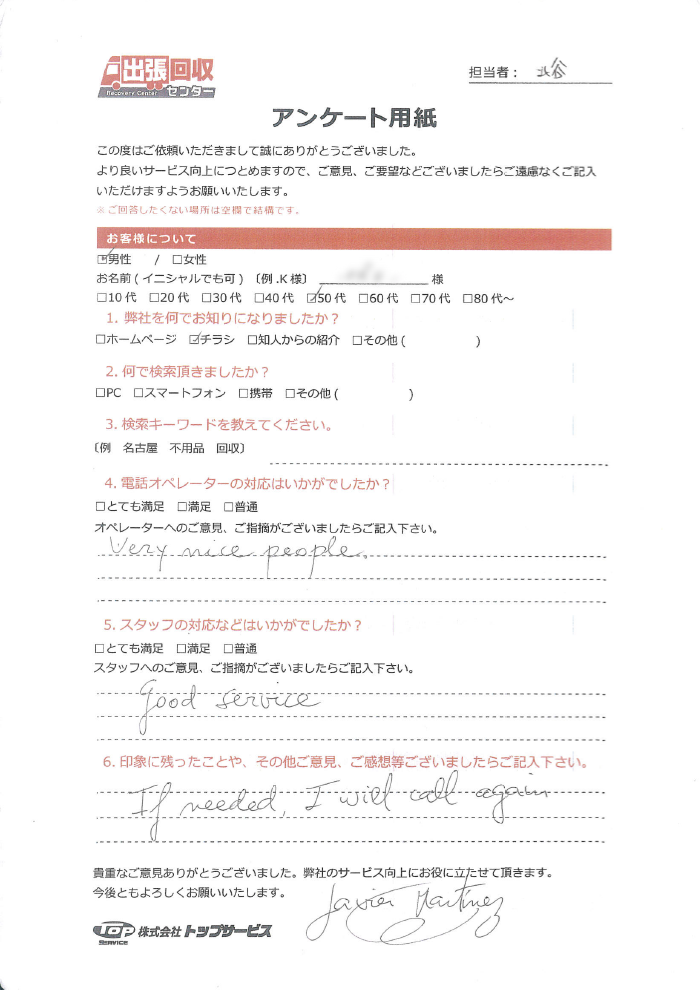 出張回収
Recovery Center センター
担当者： 北谷
アンケート用紙
この度はご依頼いただきまして誠にありがとうございました。
より良いサービス向上につとめますので、ご意見、ご要望などございましたらご遠慮なくご記入
いただけますようお願いいたします。
※ご回答したくない場所は空欄で結構です。
お客様について
☑男性 / □女性
お名前(イニシャルでも可)〔例.K様〕 様
□10代 □20代 □30代 □40代 ☑50代 □60代 □70代 □80代～
1. 弊社を何でお知りになりましたか？
□ホームページ ☑チラシ □知人からの紹介 □その他( )
2. 何で検索頂きましたか？
□PC □スマートフォン □携帯 □その他( )
3. 検索キーワードを教えてください。
〔例 名古屋 不用品 回収〕
4. 電話オペレーターの対応はいかがでしたか？
□とても満足 □満足 □普通
オペレーターへのご意見、ご指摘がございましたらご記入下さい。
Very nice people.
5. スタッフの対応などはいかがでしたか？
□とても満足 □満足 □普通
スタッフへのご意見、ご指摘がございましたらご記入下さい。
Good service
6. 印象に残ったことや、その他ご意見、ご感想等ございましたらご記入下さい。
If needed, I will call again
貴重なご意見ありがとうございました。弊社のサービス向上にお役に立たせて頂きます。
今後ともよろしくお願いいたします。
Javier Martinez
TOP SERVICE 株式会社トップサービス